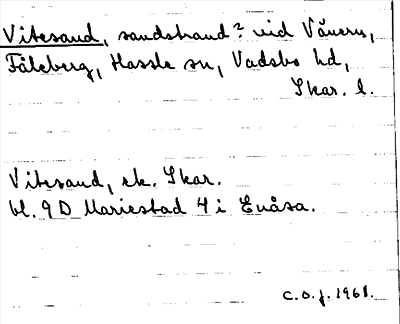 Vitesand, sandstrand? vid Vänern,
Fåleberg, Hassle sn, Vadsbo hd,
Skar. l.
Vitesand, ek. Skar.
bl. 9 D Mariestad 4 i Enåsa.
C.O.J. 1968.